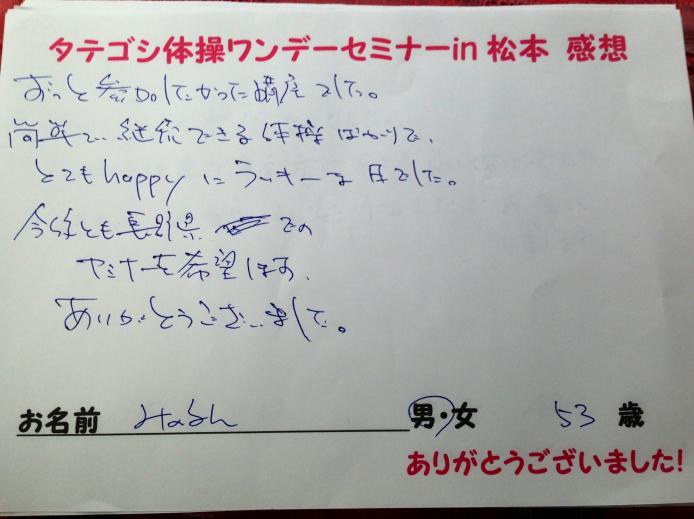 タテゴシ体操ワンデーセミナーin 松本 感想
ずっと参加したかった講座でした。
簡単で、継続できる体操ばかりで、
とてもhappyにラッキーな日でした。
今後とも長野県 での
セミナーを希望します。
ありがとうございました。
お名前 男・女 53 歳
ありがとうございました!